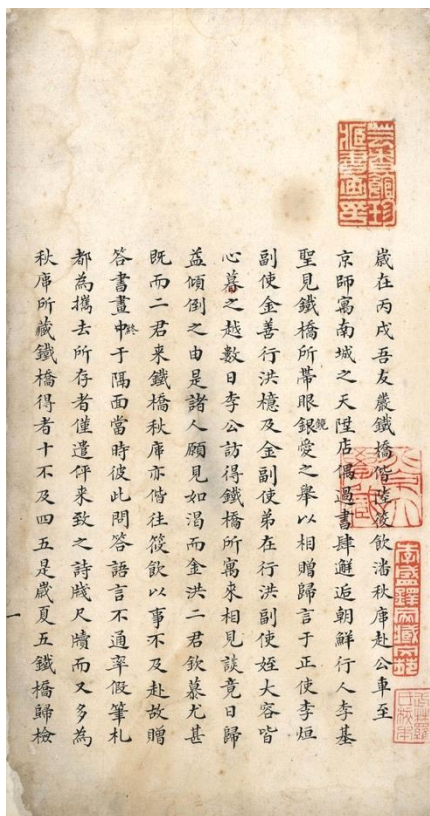 歲在丙戌吾友嚴鐵橋偕陸筱飲潘秋庫赴公車至
京師寓南城之天陞店偶過書肆邂逅朝鮮行人李基
聖見鐵橋所帶眼銀鏡愛之舉以相贈歸言于正使李烜
副使金善行洪檍及金副使弟在行洪副使姪大容皆
心慕之越數日李公訪得鐵橋所寓來相見談竟日歸
益傾倒之由是諸人願見如渴而金洪二君欽慕尤甚
既而二君來鐵橋秋庫亦偕往筱飲以事不及赴故贈
答書畫中終于隔面當時彼此問答語言不通率假筆札
都為攜去所存者僅遣伻來致之詩牋尺牘而又多為
秋庫所藏鐵橋得者十不及四五是歲夏五鐵橋歸檢
一
李盛鐸